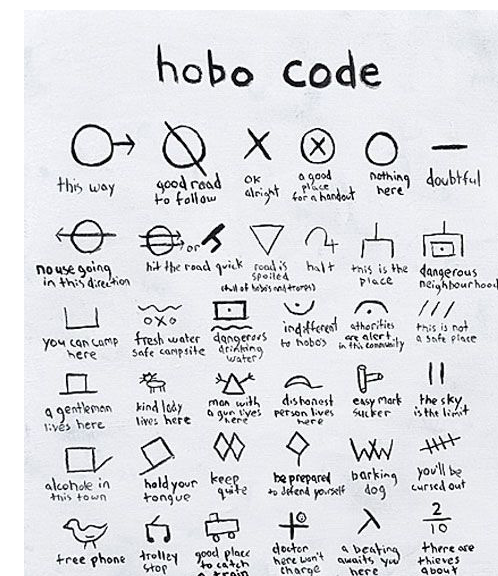 hobo code
this way
good road
to follow
OK
alright
a good
place
for a handout
nothing
here
doubtful
no use going
in this direction
or
hit the road quick
road is
spoiled
(full of hobo's and tramps)
halt
this is the
place
dangerous
neighbourhood
you can camp
here
fresh water
safe campsite
dangerous
drinking
water
indifferent
to hobo's
athorities
are alert
in this community
this is not
a safe place
a gentleman
lives here
kind lady
lives here
man with
a gun lives
here
dishonest
person lives
here
easy mark
sucker
the sky
is the limit
alcohole in
this town
hold your
tongue
keep
quite
be prepared
to defend yourself
barking
dog
you'll be
cursed out
free phone
trolley
stop
good place
to catch
a train
doctor
here won't
charge
a beating
awaits you
here
2
10
there are
thieves
about